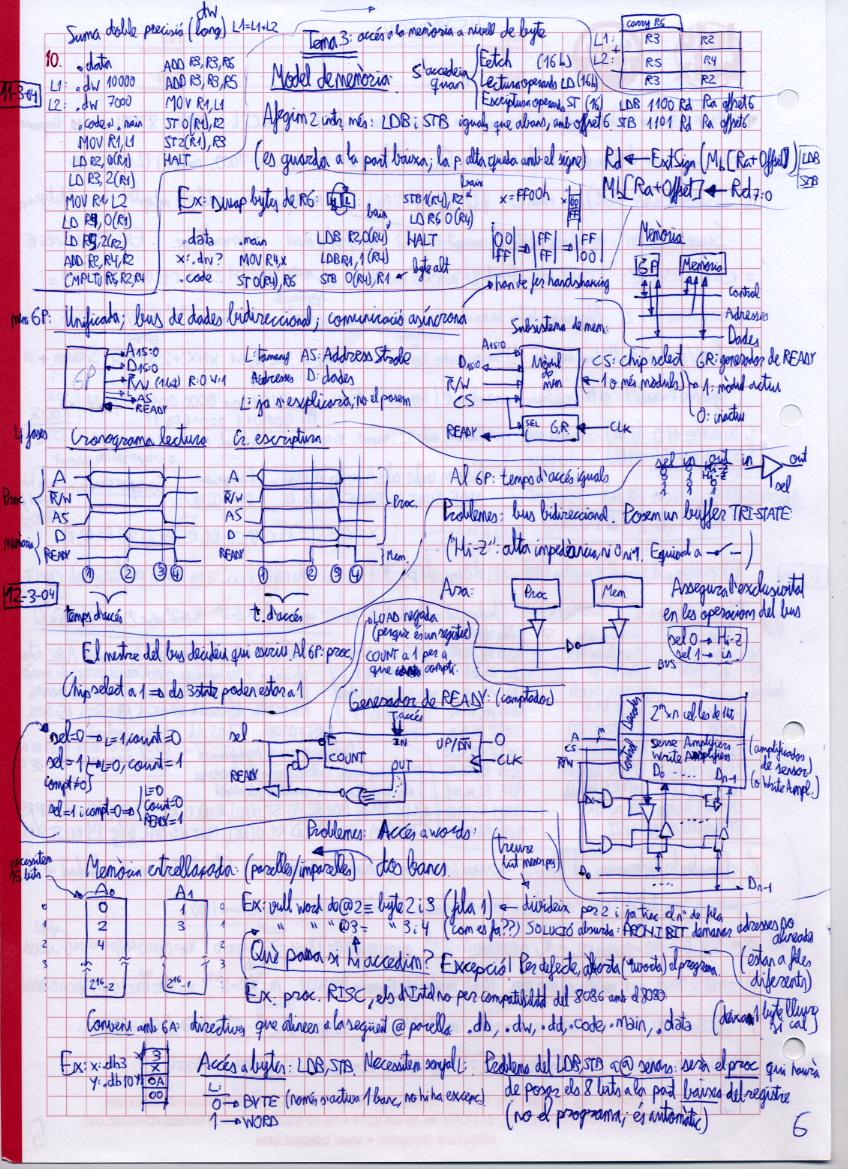 Suma doble precisió (dw long) L1=L1+L2
10.
.data
L1: .dw 10000
L2: .dw 7000
.code .main
MOV R1,L1
LD R2,0(R1)
LD R3,2(R1)
MOV R1 L2
LD R4,0(R1)
LD R5,2(R2)
ADD R2,R4,R2
CMPLTU R6,R2,R4
ADD R3,R3,R5
ADD R3,R3,R5
MOV R1,L1
ST 0(R1),R2
ST2(R1),R3
HALT
11-3-04
Tema 3: accés a la memòria a nivell de byte
Model de memòria:
S'accedeix quan
Fetch (16 b)
Lectura operands LD (16b)
Escriptura operands ST (16)
carry R6
L1: R3 R2
+
L2: R5 R4
R3 R2
LDB 1100 Rd Ra offset6
STB 1101 Rd Ra offset6
Afegim 2 intr. més: LDB i STB iguals que abans, amb offset 6.
(es guarda a la part baixa; la p. alta queda amb el signe)
Rd ← ExtSign (Mb[Ra+Offset]) LDB
Mb[Ra+Offset] ← Rd7:0 STB
Ex: swap bytes de R6:
.data
x: .dw?
.code
.main
MOV R4,x
ST 0(R4),R6
baix
LDB R2,0(R4)
LDB R1,1(R4)
STB 0(R4),R1 byte alt
baix
STB1(R4),R2
LD R6 0(R4)
HALT
x=FF00h
00 FF → FF FF → FF 00
Memòria
GP Memòria
Control
Adresses
Dades
han de fer handshaking
mem GP: Unificada; bus de dades bidireccional; comunicació asíncrona
GP
A15:0
D15:0
R/W (1bit) R:0 W:1
AS
READY
L: tamany AS: Address Strobe
A: adresses D: dades
L: ja s'explicarà; no el posem
Subsistema de mem:
A15:0
D15:0
R/W
CS
READY
Mòdul de mem
SEL G.R. CLK
CS: chip select GR: generador de READY
(1 o més moduls) 1: mòdul actiu
0: inactiu
4 fases Cronograma lectura Cr. escriptura
Proc
A
R/W
AS
memòria
D
READY
1 2 3 4
temps d'accés
A
R/W
AS
D
READY
Proc.
Mem.
1 2 3 4
t. d'accés
Al GP: temps d'accés iguals
sel in out
0 0 Hi-Z
0 1 Hi-Z
1 0 0
1 1 1
in out
sel
Problemes: bus bidireccional. Posem un buffer TRI-STATE:
("Hi-Z": alta impedància, ni 0 ni 1. Equival a )
12-3-04
El mestre del bus decideix qui escriu. Al GP: proc.
Chip select a 1 ⇒ els 3state poden estar a 1
Ara:
Proc Mem
BUS
Assegura l'exclusivitat
en les operacions del bus
sel 0 → Hi-Z
sel 1 → in
LOAD negada
(perquè és un registre)
COUNT a 1 per a
que compti.
Generador de READY: (comptador)
t accés
sel=0 → L=1, count=0
sel=1 → L=0, count=1
compt≠0
sel=1 i compt=0 ⇒ L=0
count=0
READY=1
sel
READY
L IN UP/DN 0
COUNT CLK
OUT
A
CS
R/W
Control Decoder
2^m x n cel·les de 1 bit
Sense Amplifiers
Write Amplifiers
D0 .... Dn-1
(amplificador
de sensor)
(o Write Ampl.)
D0
Dn-1
Problemes: Accés a words:
necessiten 15 bits
Memòria entrellaçada: (parelles/imparelles) dos bancs.
(treure bit menor pes)
A0 A1
0 1
2 3
4
2^16-2 2^16-1
Ex: vull word de @2 ≡ byte 2 i 3 (fila 1) ← divideix per 2 i ja tinc el nº de fila
" " " @3 = " 3 i 4 (com es fa??) SOLUCIÓ absurda: PROHIBIT demanar adresses no alineades
(estan a files diferents)
Què passa si hi accedim? Excepció! Per defecte, aborta ("avorta") el programa.
Ex. proc. RISC, els d'Intel no per compatibilitat del 8086 amb el 8080
Conveni amb GA: directives que alineen a la següent @ parella .db, .dw, .dd, .code, .main, .data (deixen 1 byte lliure si cal)
Ex: x: .db3
y: .db10
3
X
0A
00
Accés a bytes: LDB, STB. Necessiten senyal L:
L
0 → BYTE (només s'activa 1 banc, no hi ha excepc.)
1 → WORD
Problema del LDB, STB a @ senars: serà el proc qui haurà
de posar els 8 bits a la part baixes del registre
(no el programa; és automàtic)
6